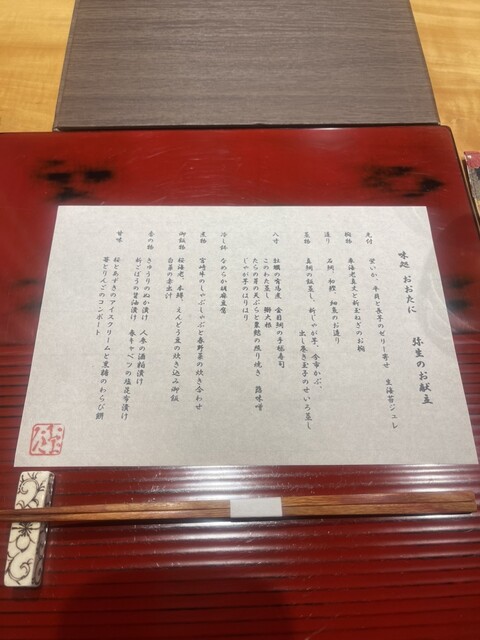 味処 おおたに 弥生のお献立
先付 蛍いか、平貝と長芋のゼリー寄せ 生海苔ジュレ
椀物 車海老真丈と新玉ねぎのお椀
造り 石鯛、初鰹、細魚のお造り
蒸物 真鯛の飯蒸し、新じゃが芋、今市かぶ、
出し巻き玉子のせいろ蒸し
八寸 牡蠣の有馬煮 金目鯛の手毬寿司
このわた蒸し 鰤大根
たらの芽の天ぷらと 照り焼き 蕗味噌
じゃが芋のはりはり
冷し鉢 なめらか胡麻豆腐
煮物 宮崎牛のしゃぶしゃぶと春野菜の炊き合わせ
御飯物 桜海老、本鱒、えんどう豆の炊き込み御飯
白菜の赤出汁
香の物 きゅうりのぬか漬け 人参の酒粕漬け
新ごぼうの醤油漬け 春キャベツの塩昆布漬け
甘味 桜とあずきのアイスクリームと黒糖のわらび餅
苺とりんごのコンポート